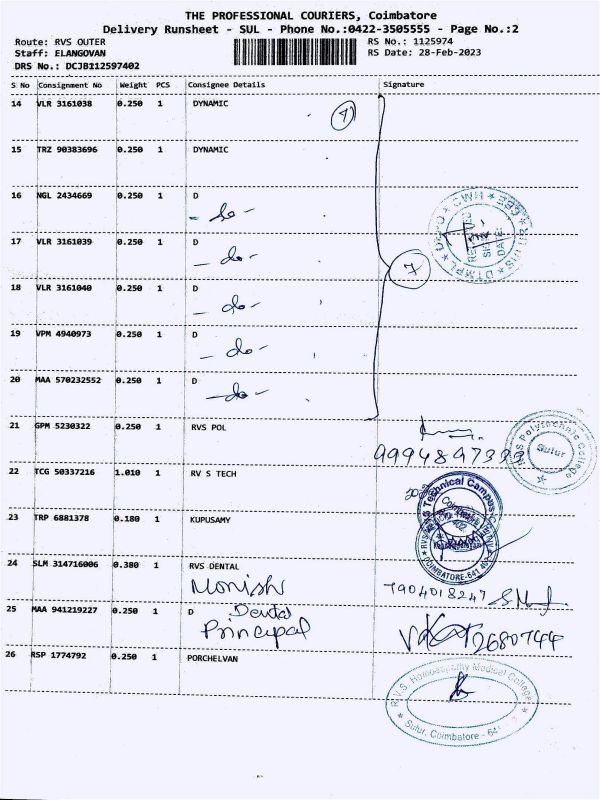 THE PROFESSIONAL COURIERS, Coimbatore
Delivery Runsheet - SUL - Phone No.:0422-3505555 - Page No.:2
Route: RVS OUTER RS No.: 1125974
Staff: ELANGOVAN RS Date: 28-Feb-2023
DRS No.: DCJB112597402
S No Consignment No Weight PCS Consignee Details Signature
14 VLR 3161038 0.250 1 DYNAMIC
15 TRZ 90383696 0.250 1 DYNAMIC
16 NGL 2434669 0.250 1 D
- do -
17 VLR 3161039 0.250 1 D
- do -
7
18 VLR 3161040 0.250 1 D
- do -
19 VPM 4940973 0.250 1 D
- do -
20 MAA 570232552 0.250 1 D
- do -
21 GPM 5230322 0.250 1 RVS POL
RVS Polytechnic College
Sulur
22 TCG 50337216 1.010 1 RV S TECH
Technical Campus
23 TRP 6881378 0.180 1 KUPUSAMY
COIMBATORE-641 402
24 SLM 314716006 0.380 1 RVS DENTAL
Monish 7904018247
25 MAA 941219227 0.250 1 D
Dental
Principal 2680744
26 RSP 1774792 0.250 1 PORCHELVAN
R.V.S. Homoeopathy Medical College
Sulur, Coimbatore - 641